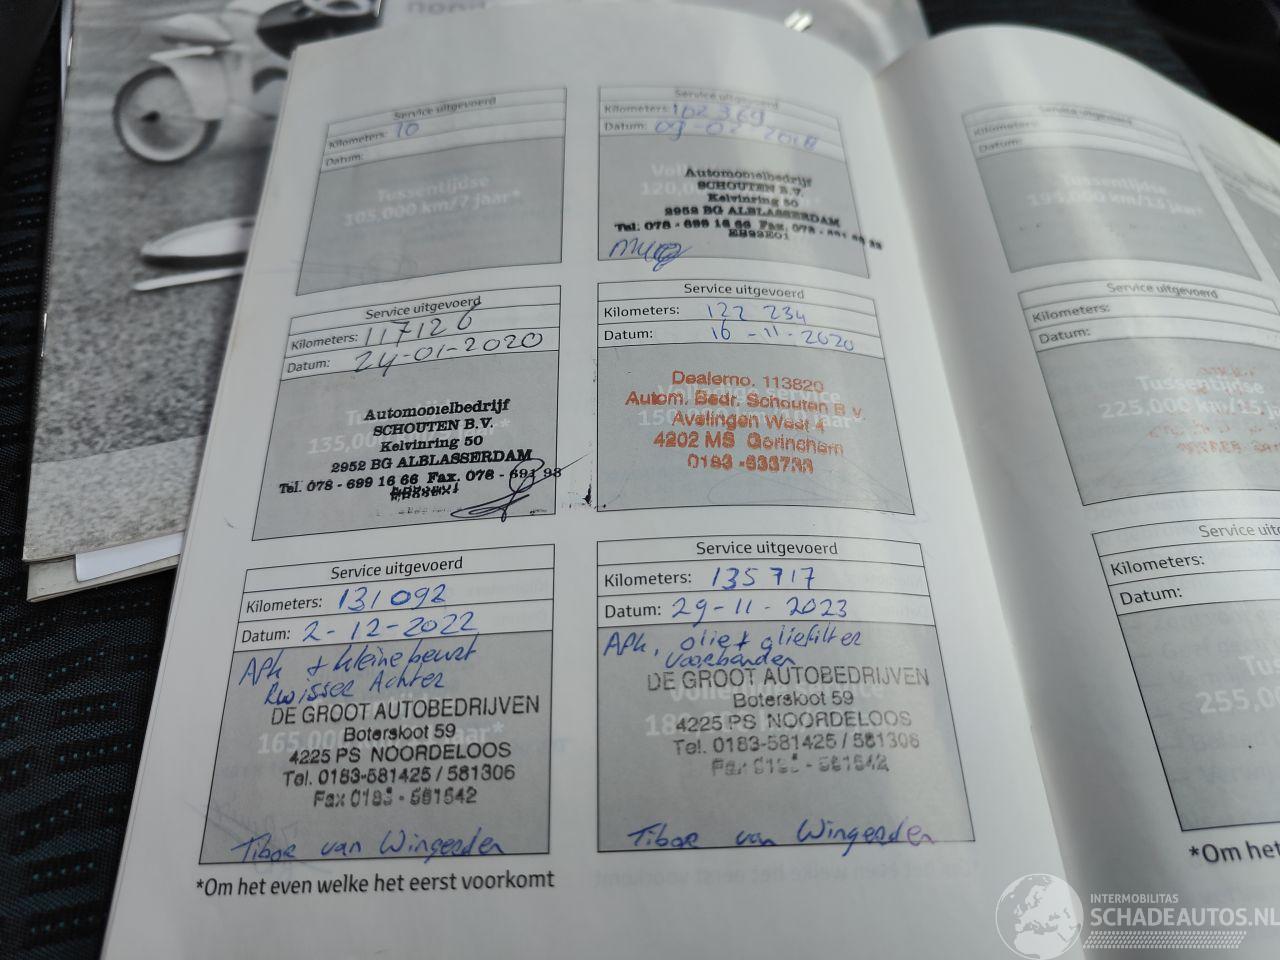 Service uitgevoerd
Kilometers: 10
Datum:
Tussentijdse
105.000 km/7 jaar*
Service uitgevoerd
Kilometers: 102 369
Datum:
120,0
Automobielbedrijf
SCHOUTEN B.V.
Kelvinring 50
2952 BG ALBLASSERDAM
Tel. 078 - 699 16 66 Fax. 078 -
Service uitgevoerd
Kilometers: 117126
Datum: 24-01-2020
135,00
Automobielbedrijf
SCHOUTEN B.V.
Kelvinring 50
2952 BG ALBLASSERDAM
Tel. 078 - 699 16 66 Fax. 078 - 691 98
Service uitgevoerd
Kilometers: 122 234
Datum: 16-11-2020
Dealerno. 113820
Autom. Bedr. Schouten B.V.
Avelingen West 4
4202 MS Gorinchem
Service uitgevoerd
Kilometers: 131 092
Datum: 2-12-2022
APK + kleine beurt
Rwisser Achter
165,00
DE GROOT AUTOBEDRIJVEN
Botersloot 59
4225 PS NOORDELOOS
Tel. 0183-581425 / 581306
Fax 0183 - 581542
Tibor van Wingerden
Service uitgevoerd
Kilometers: 135 717
Datum: 29-11-2023
APK, olie + oliefilter
voorbanden
DE GROOT AUTOBEDRIJVEN
Botersloot 59
4225 PS NOORDELOOS
Tel. 0183-581425 / 581306
Fax 0183 - 581542
Tibor van Wingerden
*Om het even welke het eerst voorkomt
Kilometers:
Datum:
Tussentijdse
195,000 km/13 jaar*
Service uitgevoerd
Kilometers:
Datum:
Tussentijdse
225,000 km/15 jaar*
Service uitg
Kilometers:
Datum:
Tus
255,0
*Om het
INTERMOBILITAS
SCHADEAUTOS.NL